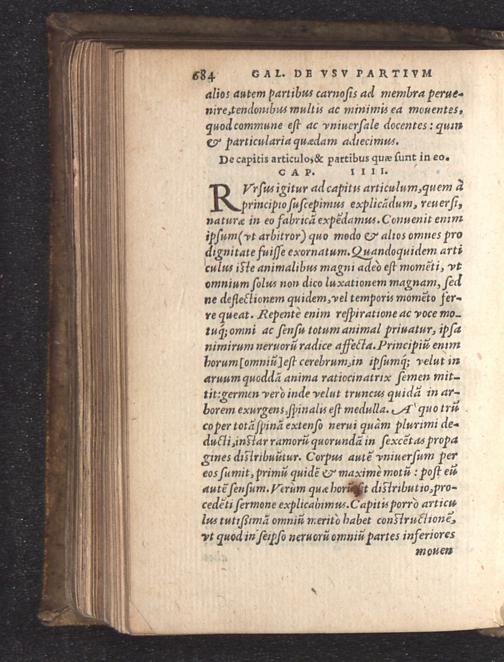 684 GAL. DE VSV PARTIVM
alios autem partibus carnosis ad membra perue-
nire, tendonibus multis ac minimis ea mouentes,
quod commune est ac vniuersale docentes: quin
& particularia quædam adiecimus.
De capitis articulo, & partibus quæ sunt in eo.
CAP. IIII.
RVrsus igitur ad capitis articulum, quem à
principio suscepimus explicādum, reuersi,
naturæ in eo fabricā expēdamus. Conuenit enim
ipsum (vt arbitror) quo modo & alios omnes pro
dignitate fuisse exornatum. Quandoquidem arti
culus iste animalibus magni adeò est momēti, vt
omnium solus non dico luxationem magnam, sed
ne deflectionem quidem, vel temporis momēto fer-
re queat. Repentè enim respiratione ac voce mo-
tuq́; omni ac sensu totum animal priuatur, ipsa
nimirum neruorū radice affecta. Principiū enim
horum [omniū] est cerebrum, in ipsumq́; velut in
aruum quoddā anima ratiocinatrix semen mit-
tit: germen verò inde velut truncus quidā in ar-
borem exurgens, spinalis est medulla. A quo trū
co per totā spinā extenso nerui quàm plurimi de-
ducti, instar ramorū quorundā in sexcētas propa
gines distribuūtur. Corpus autē vniuersum per
eos sumit, primū quidē & maximè motū: post eū
autē sensum. Verùm quæ horū sit distributio, pro-
cedēti sermone explicabimus. Capitis porrò articu
lus tutissimā omniū meritò habet constructionē,
vt quod in seipso neruorū omniū partes inferiores
mouen